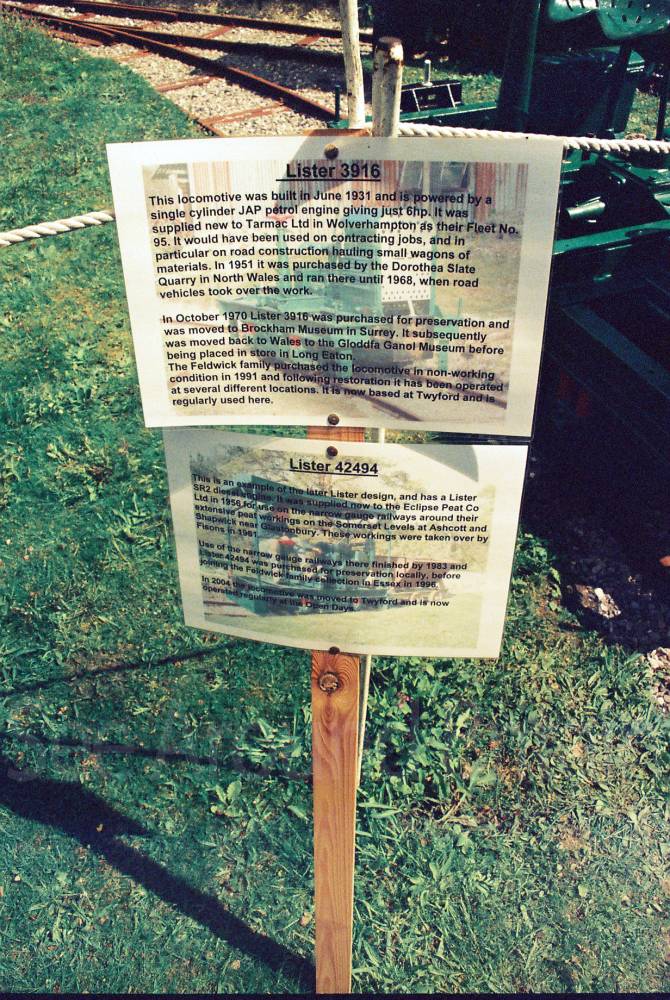 Lister 3916
This locomotive was built in June 1931 and is powered by a
single cylinder JAP petrol engine giving just 6hp. It was
supplied new to Tarmac Ltd in Wolverhampton as their Fleet No.
95. It would have been used on contracting jobs, and in
particular on road construction hauling small wagons of
materials. In 1951 it was purchased by the Dorothea Slate
Quarry in North Wales and ran there until 1968, when road
vehicles took over the work.
In October 1970 Lister 3916 was purchased for preservation and
was moved to Brockham Museum in Surrey. It subsequently
was moved back to Wales to the Gloddfa Ganol Museum before
being placed in store in Long Eaton.
The Feldwick family purchased the locomotive in non-working
condition in 1991 and following restoration it has been operated
at several different locations. It is now based at Twyford and is
regularly used here.
Lister 42494
This is an example of the later Lister design, and has a Lister
SR2 diesel engine. It was supplied new to the Eclipse Peat Co
Ltd in 1956 for use on the narrow gauge railways around their
extensive peat workings on the Somerset Levels at Ashcott and
Shapwick near Glastonbury. These workings were taken over by
Fisons in 1961.
Use of the narrow gauge railways there finished by 1983 and
Lister 42494 was purchased for preservation locally, before
joining the Feldwick family collection in Essex in 1996.
In 2004 the locomotive was moved to Twyford and is now
operated regularly at the Open Days.